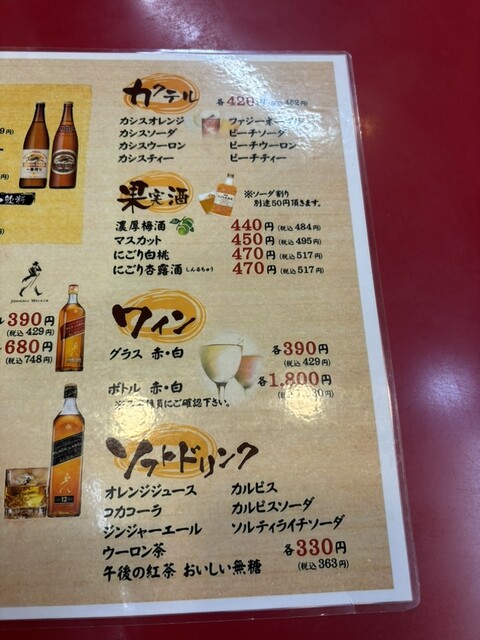 カクテル 各420円(税込462円)
カシスオレンジ
カシスソーダ ピーチソーダ
カシスウーロン ピーチウーロン
カシスティー ピーチティー
果実酒 ※ソーダ割り
別途50円頂きます。
濃厚梅酒 440円(税込484円)
マスカット 450円(税込495円)
にごり白桃 470円(税込517円)
にごり杏露酒しんるちゅう 470円(税込517円)
JOHNNIE WALKER
390円
(税込429円)
680円
(税込748円)
ワイン
グラス 赤・白 各390円
(税込429円)
ボトル 赤・白 各1,800円
にご確認下さい。
ソフトドリンク
オレンジジュース カルピス
コカコーラ カルピスソーダ
ジンジャーエール ソルティライチソーダ
ウーロン茶 各330円
午後の紅茶 おいしい無糖 (税込363円)